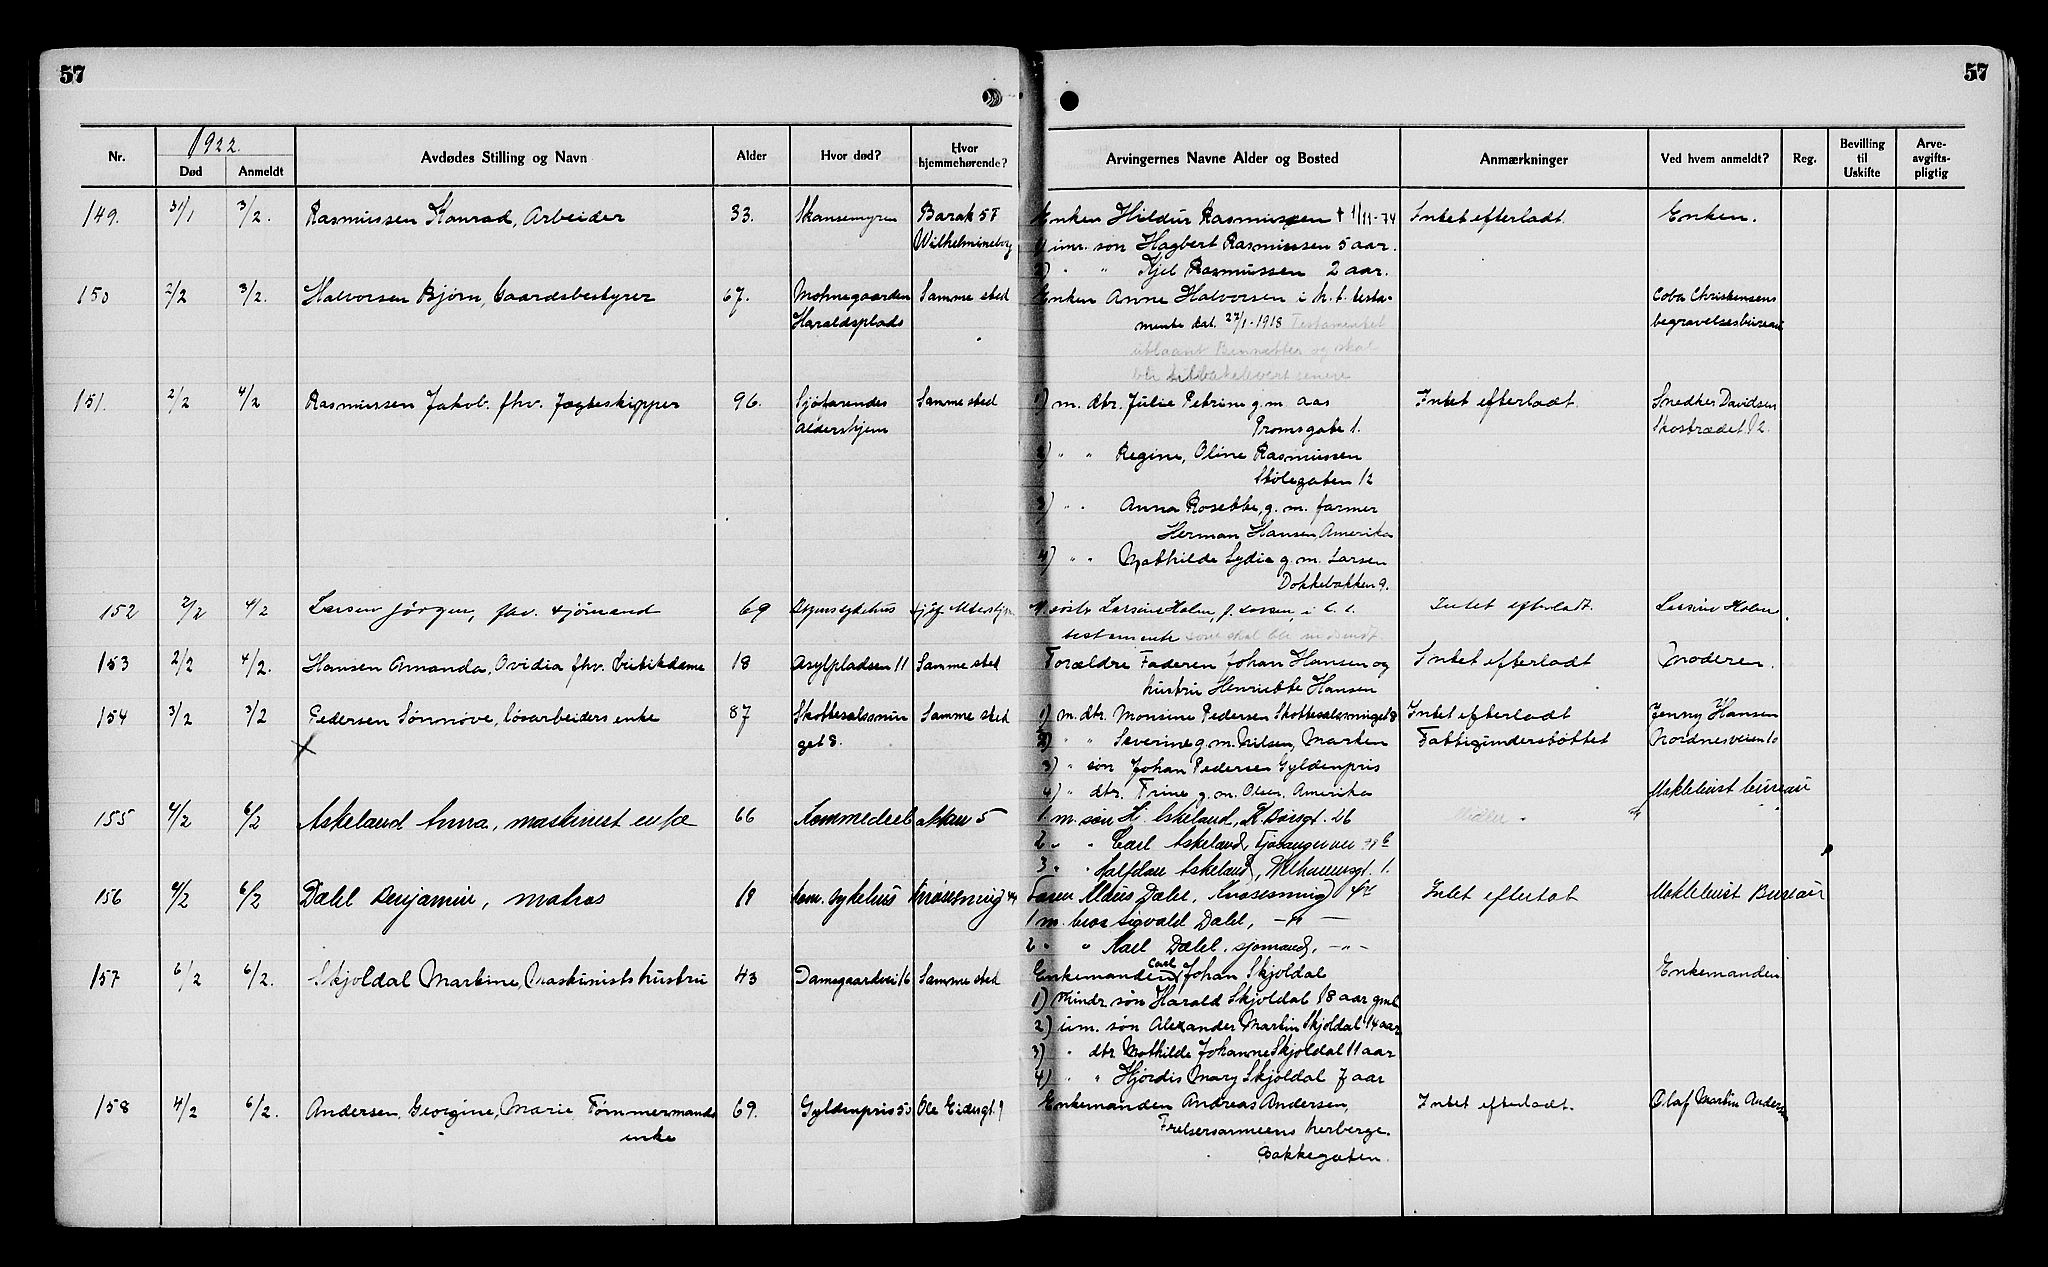 57
57
Nr. 1922. Død Anmeldt Avdødes Stilling og Navn Alder Hvor død? Hvor hjemmehørende? Arvingernes Navne Alder og Bosted Anmærkninger Ved hvem anmeldt? Reg. Bevilling til Uskifte Arve-avgifts-pligtig
149. 31/1 3/2. Rasmussen Konrad, Arbeider 33. Skansemyren Barak 57 Enken Hildur Rasmussen † 1/11-74 Intet efterladt. Enken.
Wilhelmineborg 1) um. søn Hagbert Rasmussen 5 aar.
2) " " Kjel Rasmussen 2 aar.
150 2/2 3/2. Halvorsen Bjørn, Gaardsbestyrer 67. Mohnegaarden Samme sted Enken Anne Halvorsen i h. t. testa- Coba Christensens
Haraldsplads mente dat. 27/1-1918 Testamentet begravelsesbureau
utlaant Bennetter og skal
bli tilbakelevert senere
151. 2/2 4/2 Rasmussen Jakob. fhv. Jagteskipper 96. Sjøfarendes Samme sted 1) m. dtr. Julie Petrine g. m. Aas Intet efterladt Snedker Davidsen
Aldershjem Promsgate 1. Skostrædet 12.
2) " " Regine, Oline Rasmussen
Skolegaten 12
3) " " Anna Rosette, g. m. farmer
Herman Hansen, Amerika
4) " " Mathilde Lydia g. m. Larsen
Dokkebakken 9.
152 2/2 4/2 Larsen Jørgen, fhv. sjømand 69 sykehus sjøf. Aldershjem Larsine Holm, f. Larsen, i h. t. Intet efterladt. Larsine Holm
testamente som skal bli indsendt.
153 2/2 4/2. Hansen Amanda, Ovidia fhv. butikdame 18 Asylpladsen 11 Samme sted Forældre Faderen Johan Hansen og Intet efterladt Moderen.
hustru Henriette Hansen
154 3/2 3/2 Pedersen Sønnøve, løsarbeiders enke 87 Skottesalssmu- Samme sted 1) m. dtr. Monsine Pedersen Skottesalssmuget 8 Intet efterladt Jenny Hansen
get 8. 2) " " Severine g. m. Nilsen, Marken Fattigunderstøttet Nordnesveien 10
3) " søn Johan Pedersen Gyldenpris
4) " dtr. Trine g. m. Olsen. Amerika
155 4/2 6/2 Askeland Anna, maskinist enke 66 Kommedeel altan 5 1. m. søn H. Askeland, K. Børsgt. 26 Midler. Møklebust bureau
2 " " Carl Askeland, Fjøsangervei
3 " " Halfdan Askeland, Welhavensgt. 1.
156 4/2 6/2 Dalel Benjamin, matros 19 kom. sykehus Krosesmug 44 Faren Klaus Dalel, Krosesmug Intet efterlat Møklebust Bureau
1 m. bror Sigvald Dalel, — " —
2 " " Karl Dalel. sjømand, — " —
157 6/2 6/2. Skjoldal Martine, Maskinists hustru 43 Damsgaardvei 16 Samme sted Enkemanden Carl Johan Skjoldal Enkemanden
1) Mindr søn Harald Skjoldal 18 aar gml
2) um. søn Alexander Martin Skjoldal 14 aar
3) " dtr Mathilde Johanne Skjoldal 11 aar
4) " " Hjørdis Mary Skjoldal 7 aar
158 4/2 6/2. Andersen, Georgine, Marie Tømmermands 69. Gyldenpris 53 Ole Eidesgt. 9 Enkemanden Andreas Andersen, Intet efterladt. Olaf Martin Andersen
enke Frelsersarmeens herberge.
Bakkegaten.